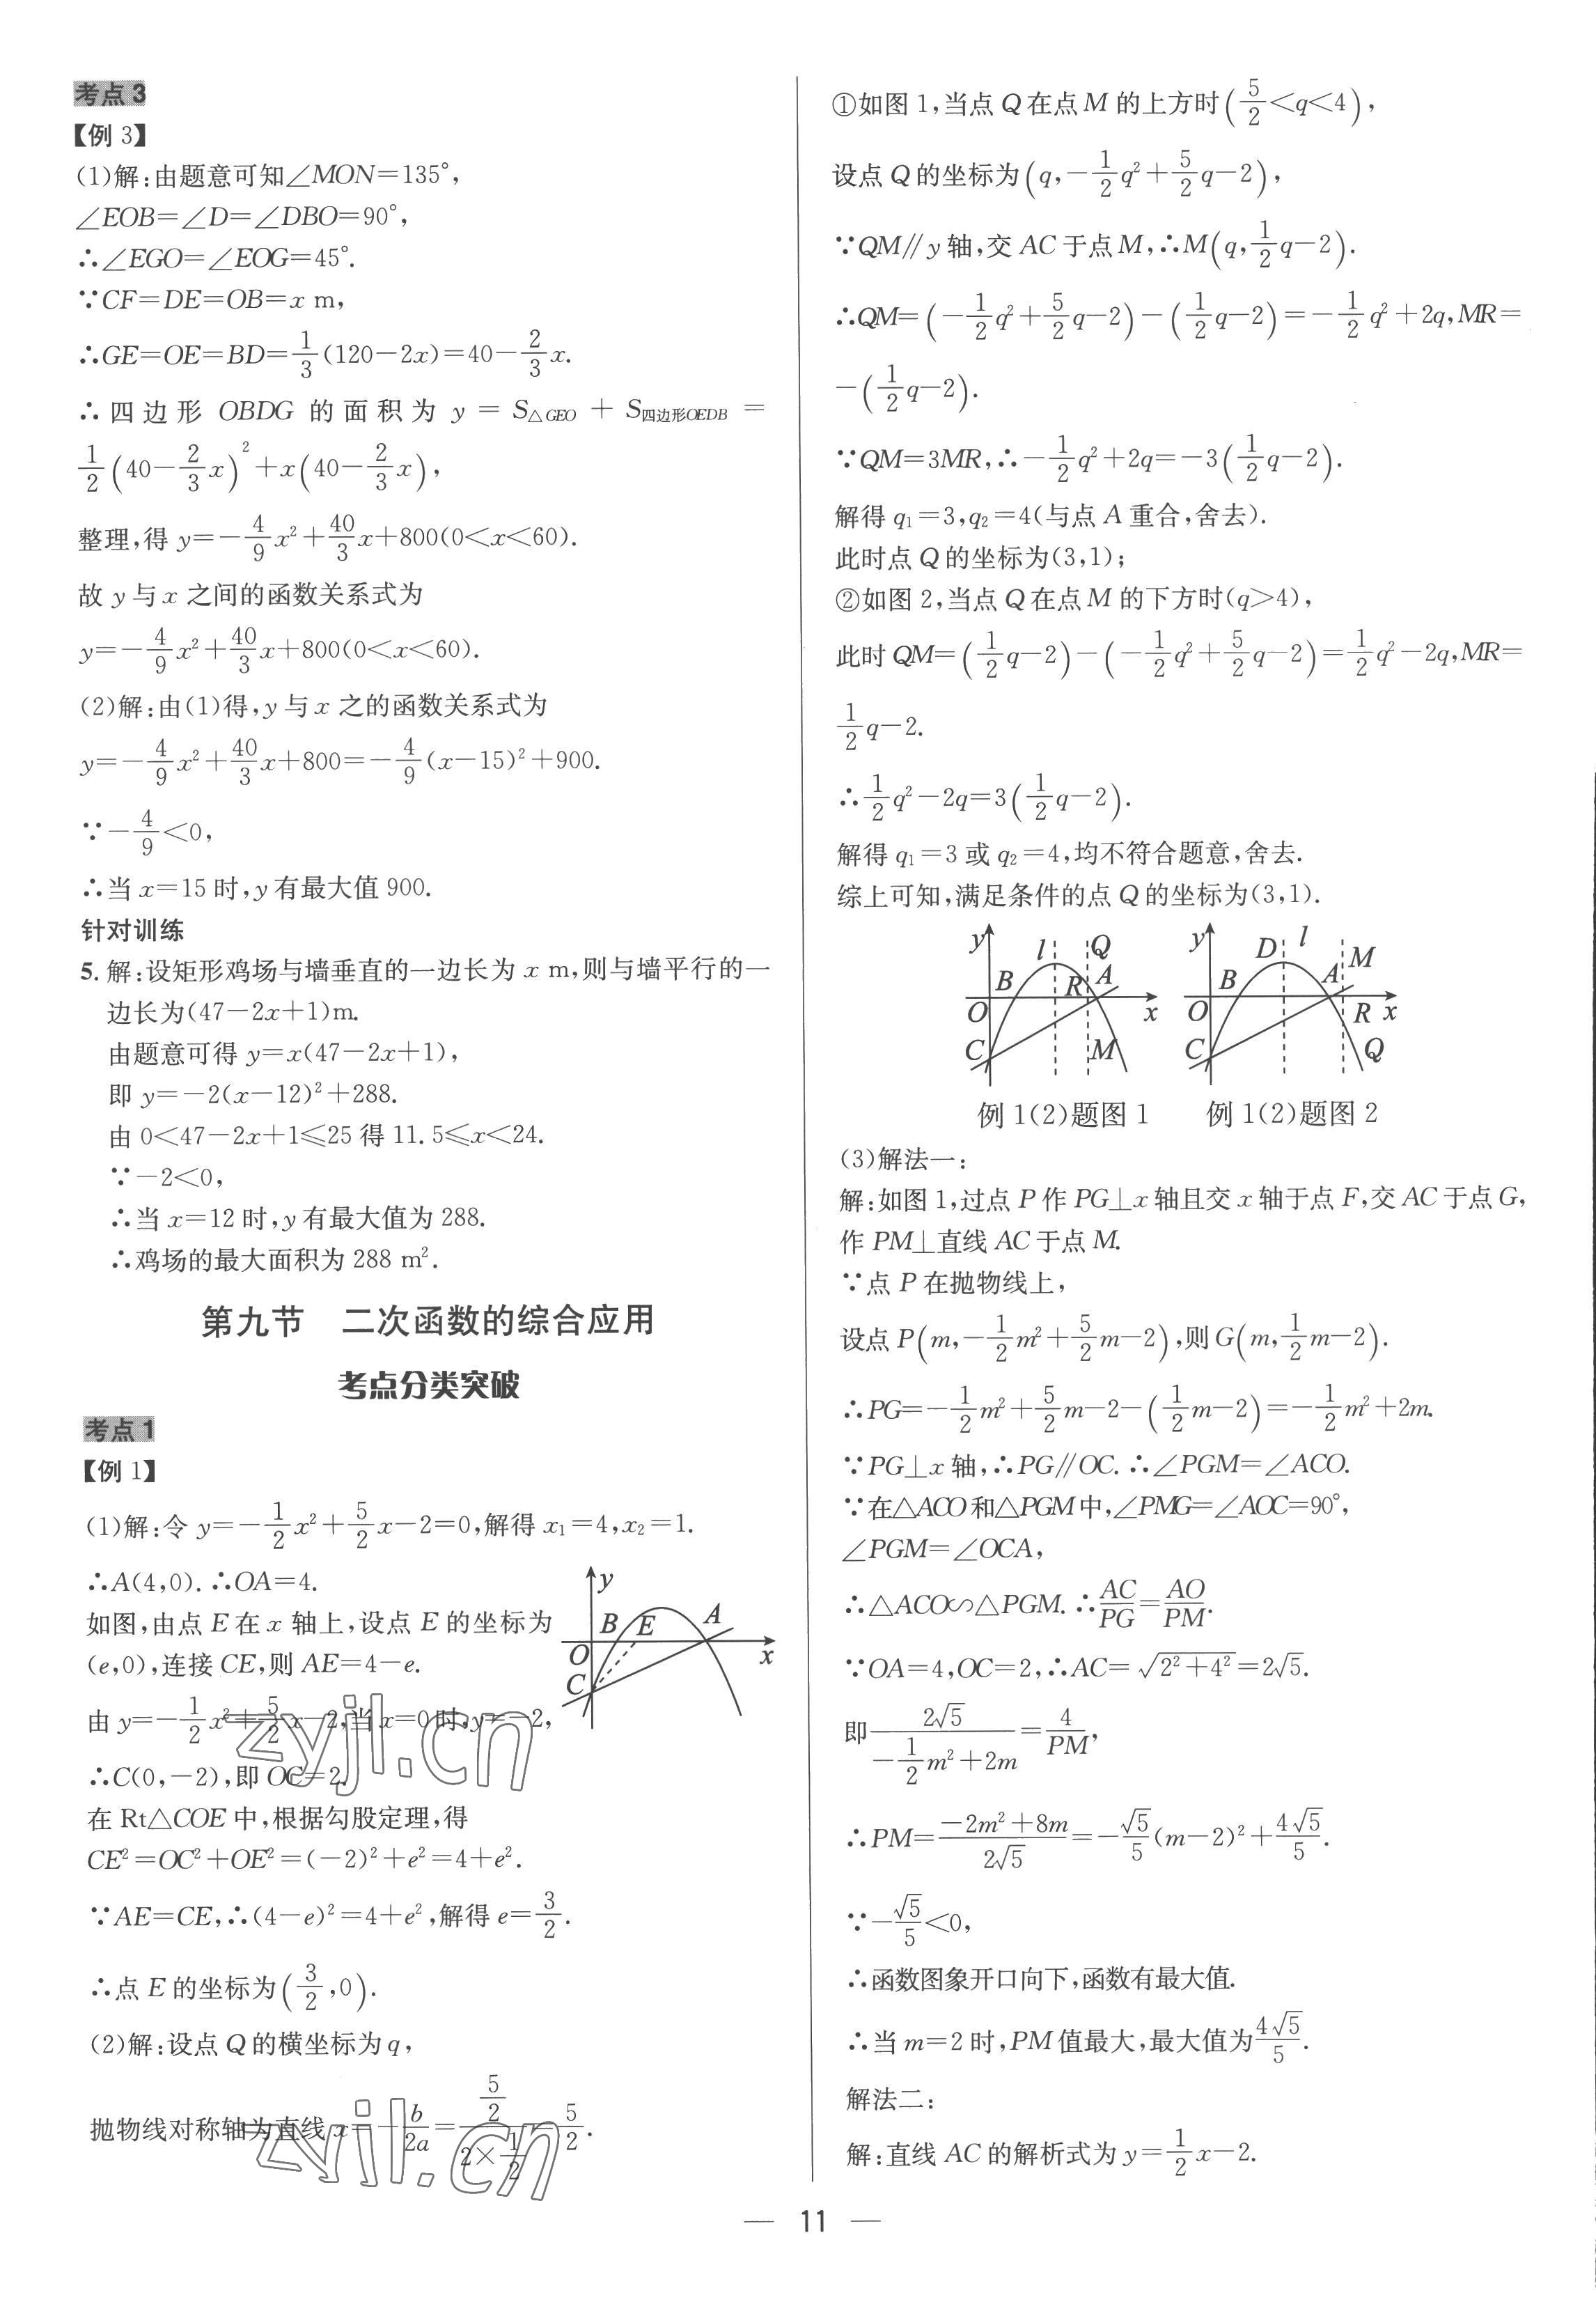 考点3
【例 3】
(1)解:由题意可知∠MON=135°,
∠EOB=∠D=∠DBO=90°,
∴∠EGO=∠EOG=45°.
∵CF=DE=OB=x m,
∴GE=OE=BD=1/3(120-2x)=40-2/3x.
∴四边形 OBDG 的面积为 y = S△GEO + S四边形OEDB =
1/2(40-2/3x)²+x(40-2/3x),
整理,得 y=-4/9x²+40/3x+800(0<x<60).
故 y 与 x 之间的函数关系式为
y=-4/9x²+40/3x+800(0<x<60).
(2)解:由(1)得,y 与 x 之的函数关系式为
y=-4/9x²+40/3x+800=-4/9(x-15)²+900.
∵-4/9<0,
∴当 x=15 时,y 有最大值 900.
针对训练
5. 解:设矩形鸡场与墙垂直的一边长为 x m,则与墙平行的一
边长为(47-2x+1)m.
由题意可得 y=x(47-2x+1),
即 y=-2(x-12)²+288.
由 0<47-2x+1≤25 得 11.5≤x<24.
∵-2<0,
∴当 x=12 时,y 有最大值为 288.
∴鸡场的最大面积为 288 m².
第九节 二次函数的综合应用
考点分类突破
考点1
【例 1】
(1)解:令 y=-1/2x²+5/2x-2=0,解得 x₁=4,x₂=1.
∴A(4,0). ∴OA=4.
如图,由点 E 在 x 轴上,设点 E 的坐标为
(e,0),连接 CE,则 AE=4-e.
由 y=-1/2x²+5/2x-2,当 x=0 时,y=-2,
∴C(0,-2),即 OC=2.
y
B E A
O x
C
在 Rt△COE 中,根据勾股定理,得
CE²=OC²+OE²=(-2)²+e²=4+e².
∵AE=CE,∴(4-e)²=4+e²,解得 e=3/2.
∴点 E 的坐标为(3/2,0).
(2)解:设点 Q 的横坐标为 q,
抛物线对称轴为直线 x=-b/2a=(5/2)/(2×1/2)=5/2.
①如图 1,当点 Q 在点 M 的上方时(5/2<q<4),
设点 Q 的坐标为(q,-1/2q²+5/2q-2),
∵QM∥y 轴,交 AC 于点 M,∴M(q,1/2q-2).
∴QM=(-1/2q²+5/2q-2)-(1/2q-2)=-1/2q²+2q,MR=
-(1/2q-2).
∵QM=3MR,∴-1/2q²+2q=-3(1/2q-2).
解得 q₁=3,q₂=4(与点 A 重合,舍去).
此时点 Q 的坐标为(3,1);
②如图 2,当点 Q 在点 M 的下方时(q>4),
此时 QM=(1/2q-2)-(-1/2q²+5/2q-2)=1/2q²-2q,MR=
1/2q-2.
∴1/2q²-2q=3(1/2q-2).
解得 q₁=3 或 q₂=4,均不符合题意,舍去.
综上可知,满足条件的点 Q 的坐标为(3,1).
y l Q
B R A
O x
C M
例 1(2)题图 1
y D l M
B A
O R x
C Q
例 1(2)题图 2
(3)解法一:
解:如图 1,过点 P 作 PG⊥x 轴且交 x 轴于点 F,交 AC 于点 G,
作 PM⊥直线 AC 于点 M.
∵点 P 在抛物线上,
设点 P(m,-1/2m²+5/2m-2),则 G(m,1/2m-2).
∴PG=-1/2m²+5/2m-2-(1/2m-2)=-1/2m²+2m.
∵PG⊥x 轴,∴PG∥OC. ∴∠PGM=∠ACO.
∵在△ACO 和△PGM 中,∠PMG=∠AOC=90°,
∠PGM=∠OCA,
∴△ACO∽△PGM. ∴AC/PG=AO/PM.
∵OA=4,OC=2,∴AC=√(2²+4²)=2√5.
即 2√5/(-1/2m²+2m)=4/PM,
∴PM=(-2m²+8m)/(2√5)=-√5/5(m-2)²+4√5/5.
∵-√5/5<0,
∴函数图象开口向下,函数有最大值.
∴当 m=2 时,PM 值最大,最大值为4√5/5.
解法二:
解:直线 AC 的解析式为 y=1/2x-2.
— 11 —
zyjl.cn
zyjl.cn